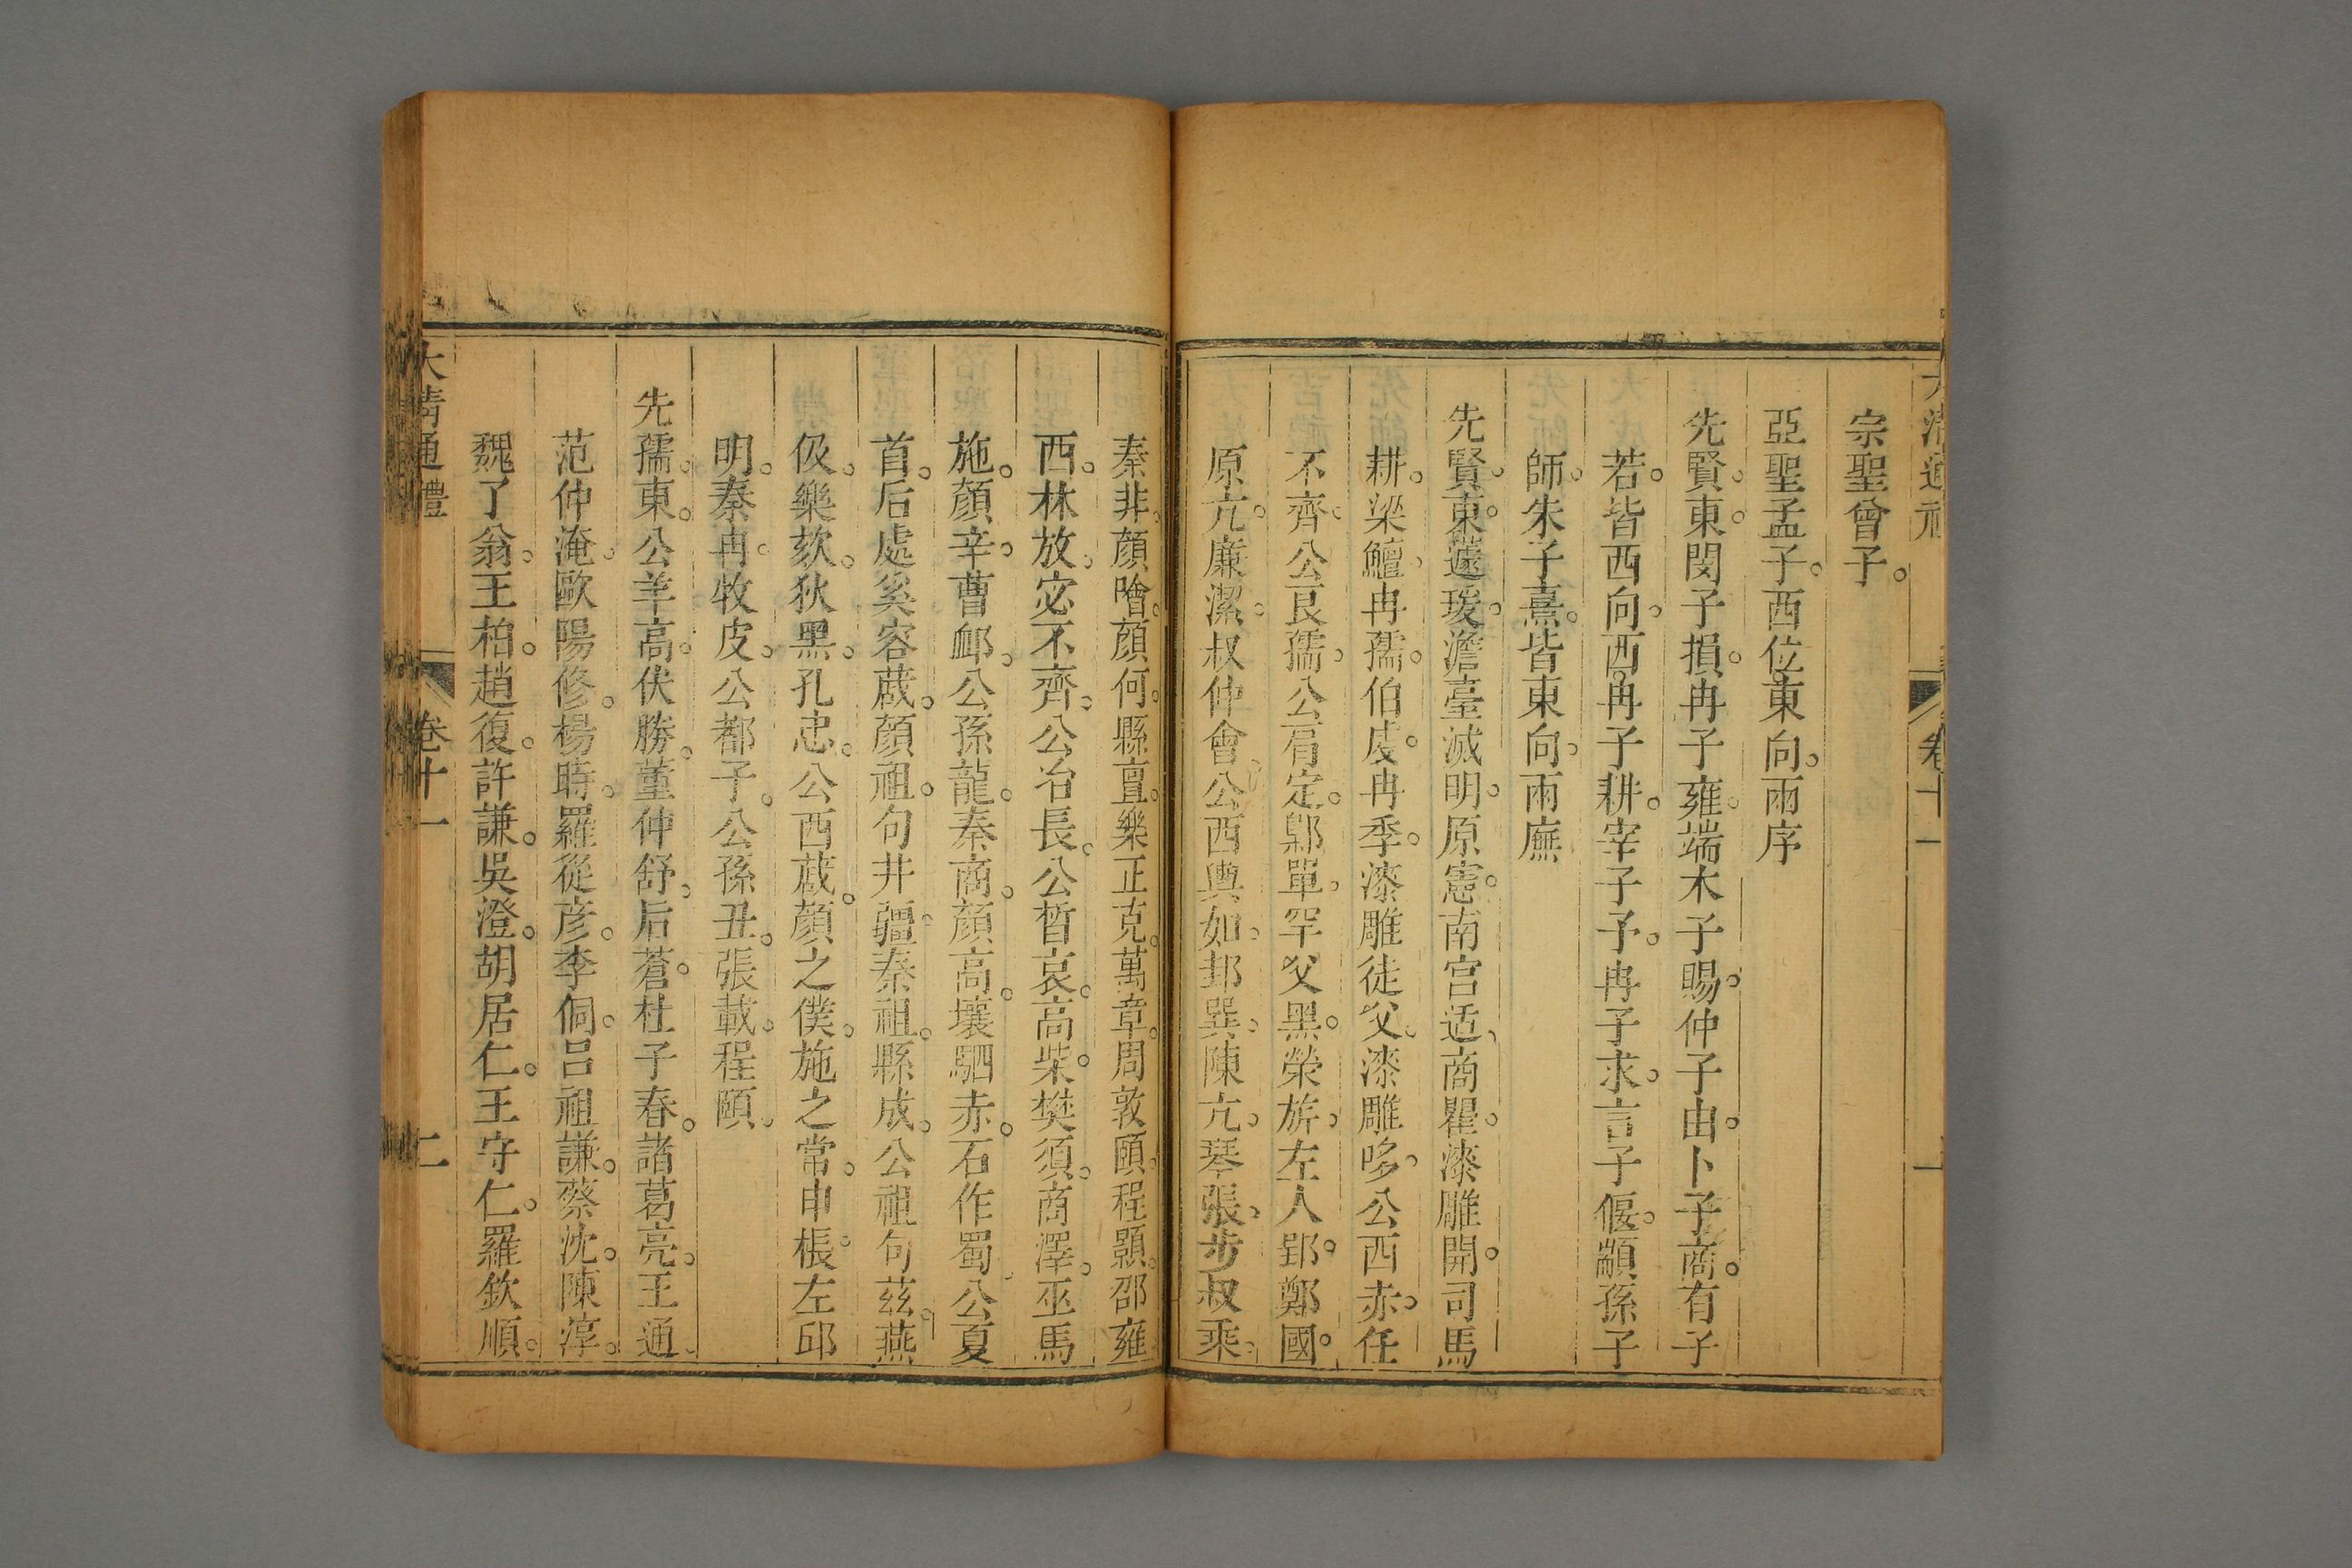 大清通禮 卷十一 一
宗聖曾子。
亞聖孟子。西位東向。兩序
先賢。東。閔子損。冉子雍。端木子賜。仲子由。卜子商。有子
若。皆西向。西。冉子耕。宰子予。冉子求。言子偃。顓孫子
師。朱子熹。皆東向。兩廡
先賢。東。蘧瑗。澹臺滅明。原憲。南宮适。商瞿。漆雕開。司馬
耕。梁鱣。冉孺。伯虔。冉季。漆雕徒父。漆雕哆。公西赤。任
不齊。公良孺。公肩定。鄡單。罕父黑。榮旂。左人郢。鄭國。
原亢。廉潔。叔仲會。公西輿如。邽巽。陳亢。琴張。步叔乘。
秦非。顏噲。顏何。縣亶。樂正克。萬章。周敦頤。程顥。邵雍
西。林放。宓不齊。公冶長。公晳哀。高柴。樊須。商澤。巫馬
施。顏辛。曹䘏。公孫龍。秦商。顏高。壤駟赤。石作蜀。公夏
首。后處。奚容蒧。顏祖。句井疆。秦祖。縣成。公祖句茲。燕
伋。樂欬。狄黑。孔忠。公西蒧。顏之僕。施之常。申棖。左邱
明。秦冉。牧皮。公都子。公孫丑。張載。程頤。
先儒。東。公羊高。伏勝。董仲舒。后蒼。杜子春。諸葛亮。王通。
范仲淹。歐陽修。楊時。羅從彦。李侗。呂祖謙。蔡沈。陳淳。
魏了翁。王柏。趙復。許謙。吳澄。胡居仁。王守仁。羅欽順。
大清通禮 卷十一 二